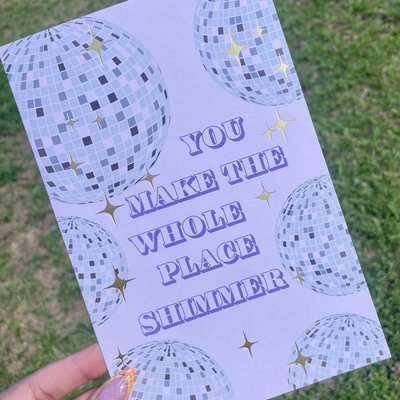 YOU
MAKE THE
WHOLE
PLACE
SHIMMER